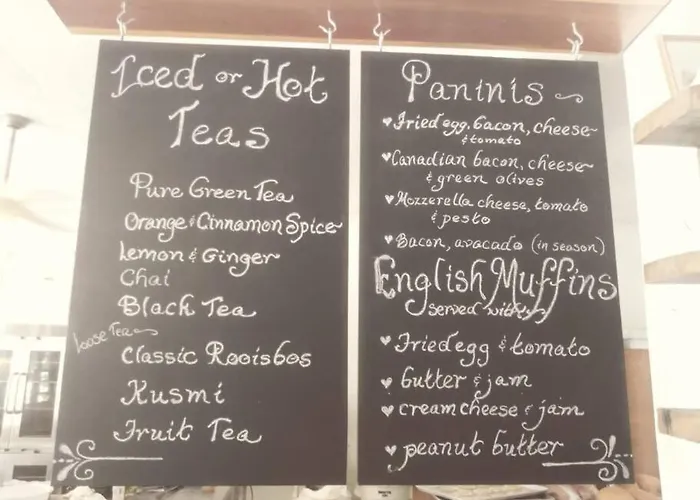 Iced or Hot
Teas
Pure Green Tea
Orange & Cinnamon Spice
Lemon & Ginger
Chai
Black Tea
Loose Tea
Classic Rooisbos
Kusmi
Fruit Tea
Paninis
Fried egg, bacon, cheese
& tomato
Canadian bacon, cheese
& green olives
Mozzerella cheese, tomato
& pesto
Bacon, avacado (in season)
English Muffins
served with
Fried egg & tomato
butter & jam
cream cheese & jam
peanut butter